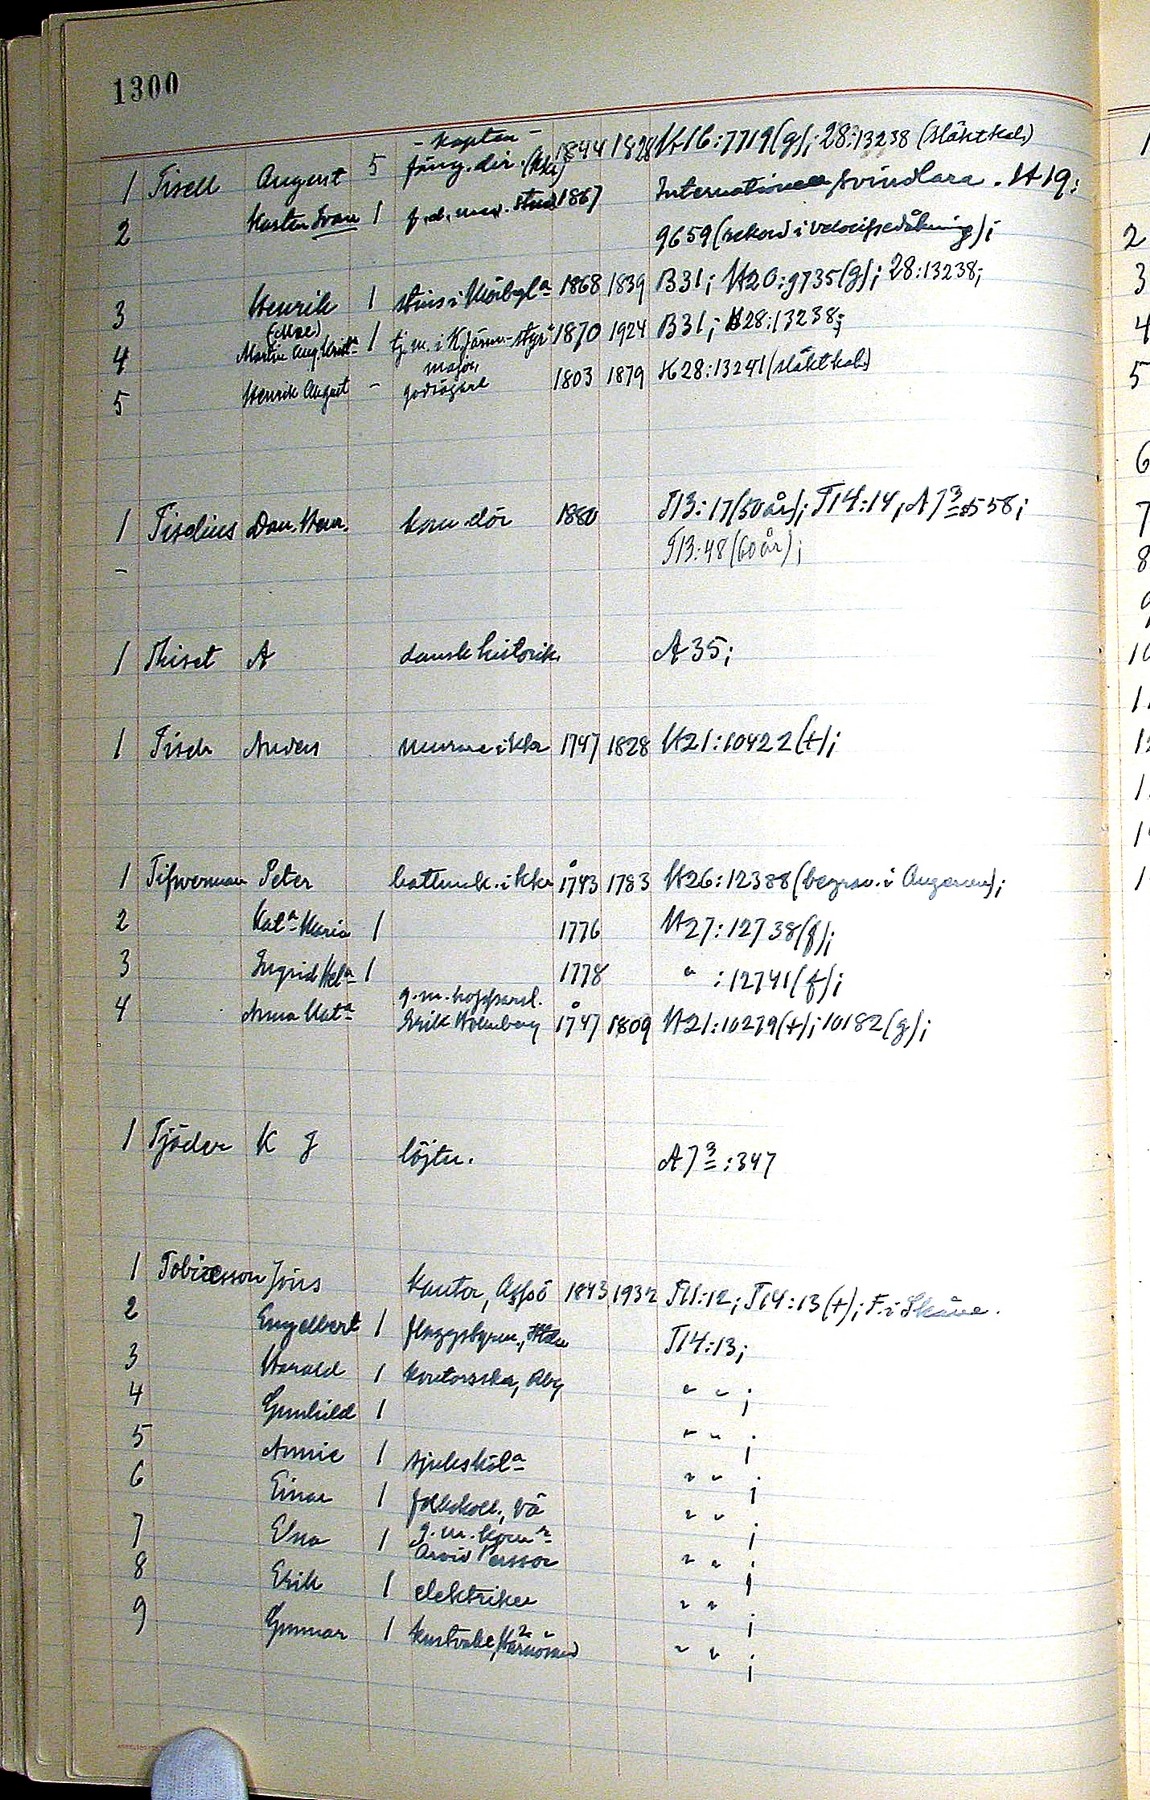 1300
- kapten -
1 Tisell August 5 fäng.dir. 1844 1828 H16:7719(g); 28:13238 (släktkal)
2 Karsten Ivan 1 f.d. med. stud 1867 Internationella svindlare. H19:
9659 (rekord i velocipedåkning);
3 Henrik 1 1868 1839 B31; H20:9735(g); 28:13238;
4 Martin Aug. 1 tj.m. i K. Järnv-styr 1870 1924 B31; H28:13238;
major,
5 Henrik August - godsägare 1803 1879 H28:13241 (släktkal)
1 Tiselius Dan. Henr. 1880 T13:17(50 år); T14:14; A7 3:558;
- T13:48 (60 år);
1 Thiset A dansk historik. A35;
1 Tisch Anders murare i Kkr 1747 1828 H21:10422 (+);
1 Peter hattmak. i Kkr 1743 1783 H26:12388 (begrav. i Augerum);
2 Kata Maria 1 1776 H27:12738(f);
3 Ingrid Hela 1 1778 " :12741(f);
g.m. kofferd.
4 Anna Kata Erik Holmberg 1747 1809 H21:10279(+); 10182(g);
1 Tjäder K G löjtn. A7 3:347
1 Tobiasson Jöns kantor, Asphö 1843 1932 T11:12; T14:13(+); F. i Skåne.
2 Engelbert 1 flaggstyrm., T14:13;
3 Harald 1 kontorsska, Åby " " ;
4 Gunhild 1 " " ;
5 Annie 1 sjuksköta " " ;
6 Einar 1 folkskoll., Vä " " ;
g.m. komr
7 Elsa 1 Arvid Persson " " ;
8 Erik 1 elektriker " " ;
9 Gunnar 1 Härnösand " " ;